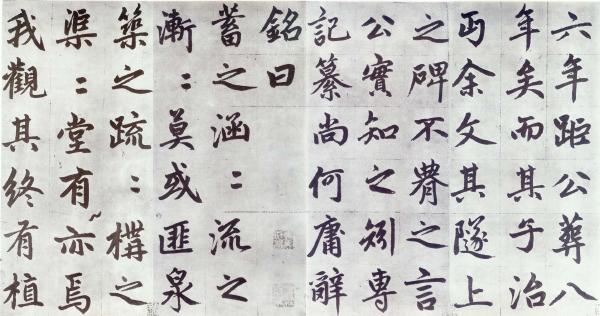 六年距公葬八
年矣而其子治
丏余文其隧上
之碑不之言
公實知之矧專
記纂尚何庸辭
銘曰
蓄之涵〻流之
漸〻莫或匪泉
築之疏〻構之
渠〻堂有亦焉
我觀其終有植